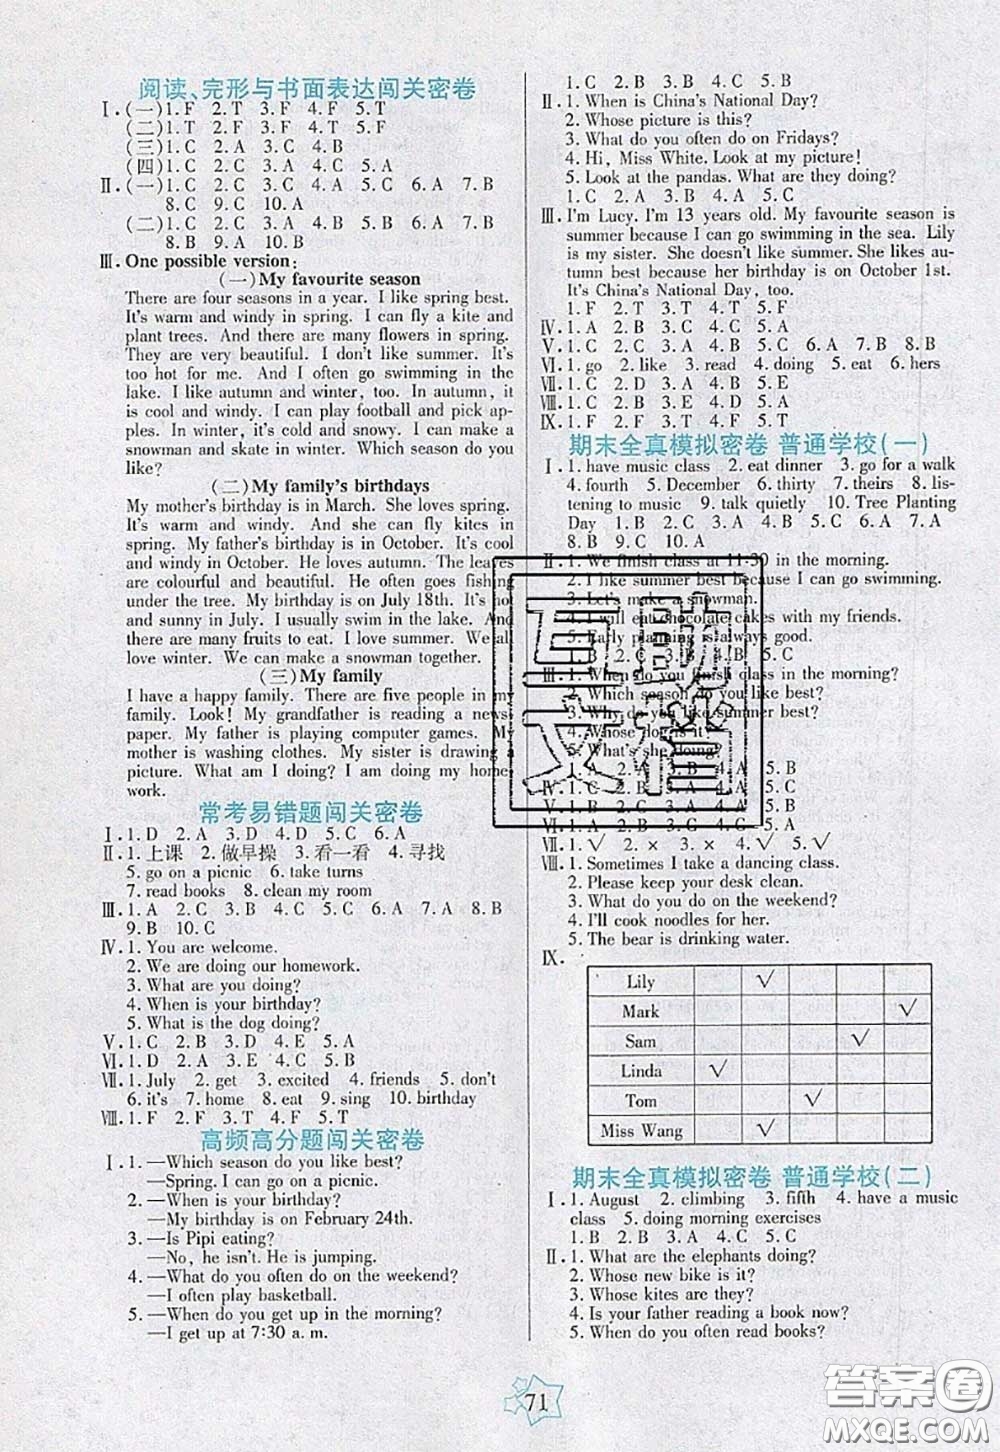 阅读、完形与书面表达闯关密卷
Ⅰ.(一)1.F 2.T 3.F 4.F 5.T
(二)1.T 2.F 3.F 4.T 5.F
(三)1.C 2.A 3.C 4.B
(四)1.C 2.C 3.A 4.C 5.A
Ⅱ.(一)1.C 2.C 3.B 4.C 5.C 6.A 7.B
8.C 9.C 10.A
(二)1.C 2.C 3.A 4.C 5.A 6.A 7.B
8.B 9.A 10.B
Ⅲ.One possible version:
(一)My favourite season
There are four seasons in a year. I like spring best.
It's warm and windy in spring. I can fly a kite and
plant trees. And there are many flowers in spring.
They are very beautiful. I don't like summer. It's
too hot for me. And I often go swimming in the
lake. I like autumn and winter, too. In autumn, it
is cool and windy. I can play football and pick ap-
ples. In winter, it's cold and snowy. I can make a
snowman and skate in winter. Which season do you
like?
(二)My family's birthdays
My mother's birthday is in March. She loves spring.
It's warm and windy. And she can fly kites in
spring. My father's birthday is in October. It's cool
and windy in October. He loves autumn. The leaves
are colourful and beautiful. He often goes fishing
under the tree. My birthday is on July 18th. It's hot
and sunny in July. I usually swim in the lake. And
there are many fruits to eat. I love summer. We all
love winter. We can make a snowman together.
(三)My family
I have a happy family. There are five people in my
family. Look! My grandfather is reading a news-
paper. My father is playing computer games. My
mother is washing clothes. My sister is drawing a
picture. What am I doing? I am doing my home-
work.
常考易错题闯关密卷
Ⅰ.1.D 2.A 3.D 4.D 5.C 6.A
Ⅱ.1.上课 2.做早操 3.看一看 4.寻找
5.go on a picnic 6.take turns
7.read books 8.clean my room
Ⅲ.1.A 2.C 3.B 4.C 5.C 6.A 7.A 8.B
9.B 10.C
Ⅳ.1.You are welcome.
2.We are doing our homework.
3.What are you doing?
4.When is your birthday?
5.What is the dog doing?
Ⅴ.1.C 2.B 3.D 4.E 5.A
Ⅵ.1.C 2.A 3.B 4.C 5.A
Ⅶ.1.July 2.get 3.excited 4.friends 5.don't
6.it's 7.home 8.eat 9.sing 10.birthday
Ⅷ.1.F 2.F 3.T 4.F 5.T
高频高分题闯关密卷
Ⅰ.1.—Which season do you like best?
—Spring. I can go on a picnic.
2.—When is your birthday?
—My birthday is on February 24th.
3.—Is Pipi eating?
—No, he isn't. He is jumping.
4.—What do you often do on the weekend?
—I often play basketball.
5.—When do you get up in the morning?
—I get up at 7:30 a.m.
1.C 2.B 3.C 4.B 5.C
Ⅱ.1.When is China's National Day?
2.Whose picture is this?
3.What do you often do on Fridays?
4.Hi, Miss White. Look at my picture!
5.Look at the pandas. What are they doing?
1.C 2.A 3.B 4.C 5.A
Ⅲ.I'm Lucy. I'm 13 years old. My favourite season is
summer because I can go swimming in the sea. Lily
is my sister. She doesn't like summer. She likes
autumn best because her birthday is on October 1st.
It's China's National Day, too.
1.F 2.T 3.T 4.T 5.F
Ⅳ.1.A 2.B 3.C 4.C 5.A
Ⅴ.1.C 2.C 3.A 4.A 5.C 6.A 7.B 8.B
Ⅵ.1.go 2.like 3.read 4.doing 5.eat 6.hers
Ⅶ.1.C 2.D 3.A 4.B 5.E
Ⅷ.1.C 2.B 3.E 4.D 5.A
Ⅸ.1.F 2.F 3.T 4.F 5.T
期末全真模拟密卷 普通学校(一)
Ⅰ.1.have music class 2.eat dinner 3.go for a walk
4.fourth 5.December 6.thirty 7.theirs 8.lis-
tening to music 9.talk quietly 10.Tree Planting
Day 1.B 2.C 3.A 4.C 5.C 6.A 7.A
8.B 9.C 10.A
Ⅱ.1.We finish class at 11:30 in the morning.
2.I like summer best because I can go swimming.
3.Let's make a snowman.
4.I will eat chocolate cakes with my friends.
5.Early planning is always good.
1.B 2.C 3.A 4.B 5.C
Ⅲ.1.When do you finish class in the morning?
2.Which season do you like best?
3.Why do you like summer best?
4.Whose dog is it?
5.What's she doing?
1.A 2.B 4.A 5.B
Ⅳ.1.C 4.A 5.C
5.C
Ⅶ.1.√ 2.× 3.× 4.√ 5.√
Ⅷ.1.Sometimes I take a dancing class.
2.Please keep your desk clean.
3.What do you do on the weekend?
4.I'll cook noodles for her.
5.The bear is drinking water.
Ⅸ.
Lily √
Mark √
Sam √
Linda √
Tom √
Miss Wang √
期末全真模拟密卷 普通学校(二)
Ⅰ.1.August 2.climbing 3.fifth 4.have a music
class 5.doing morning exercises
1.B 2.B 3.A 4.C 5.C
Ⅱ.1.What are the elephants doing?
2.Whose new bike is it?
3.Whose kites are they?
4.Is your father reading a book now?
5.When do you often read books?
71
互助文楷
答案圈
MXQE.COM